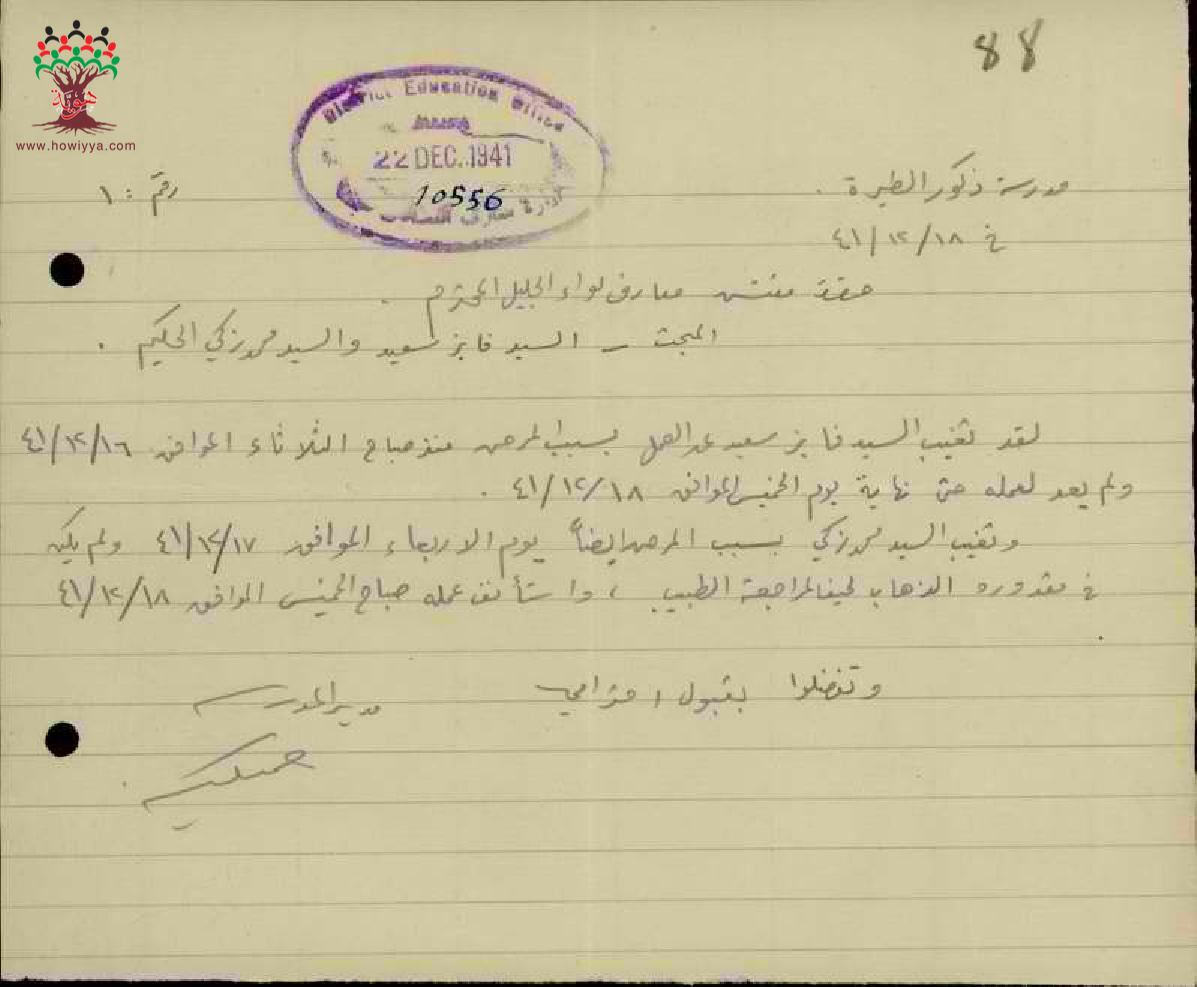 88
www.howiyya.com
District Education Office
HAIFA
22 DEC. 1941
10556
مدرسة ذكور الطيرة .
رقم : ١
في ١٨/١٢/٤١
حضرة مفتش معارف لواء الجليل المحترم .
المبحث – السيد فايز سعيد والسيد محمد زكي الحكيم .
لقد تغيب السيد فايز سعيد عن العمل بسبب المرض منذ صباح الثلاثاء الموافق ١٦/١٢/٤١
ولم يعد لعمله حتى نهاية يوم الخميس الموافق ١٨/١٢/٤١ .
وتغيب السيد محمد زكي بسبب المرض ايضاً يوم الاربعاء الموافق ١٧/١٢/٤١ ولم يكن
في مقدوره الذهاب لحيفا لمراجعة الطبيب ، واستأنف عمله صباح الخميس الموافق ١٨/١٢/٤١
.
وتفضلوا بقبول احترامي
مدير المدرسه